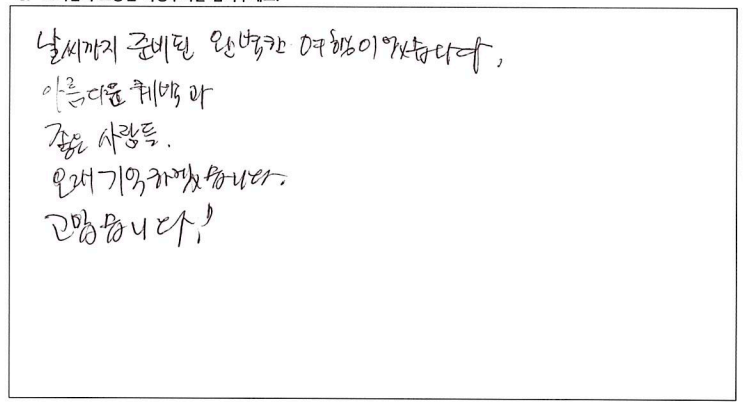 날씨까지 준비된 완벽한 여행이었습니다.
아름다운 퀘백과
좋은 사람들.
오래 기억하겠습니다.
고맙습니다!